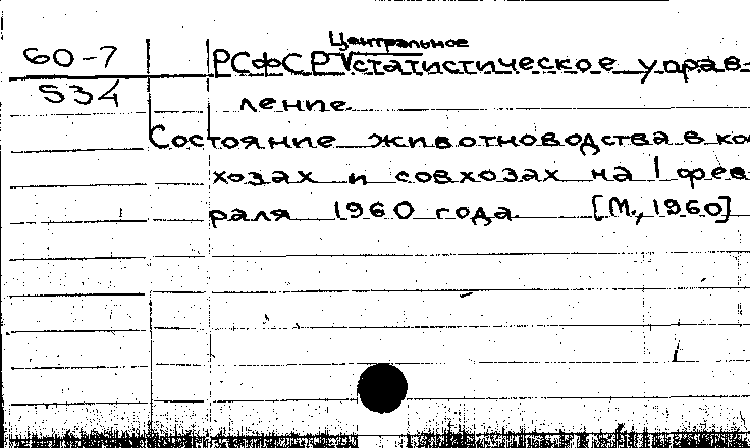 Центральное
60-7 РСФСР V статистическое управ-
534 ление.
Состояние животноводства в ко
хозах и совхозах на 1 фев
раля 1960 года. [М., 1960]